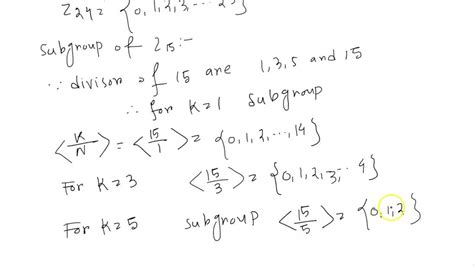 Z₂₄ = {0, 1, 2, 3, ...
Subgroup of Z₁₅:-
∵ divison of 15 are 1, 3, 5 and 15
∴ for K=1 subgroup
⟨K/N⟩ = ⟨15/1⟩ = {0, 1, 2, ..., 14}
For K=3 ⟨15/3⟩ = {0, 1, 2, 3, .. 4}
For K=5 subgroup ⟨15/5⟩ = {0, 1, 2}